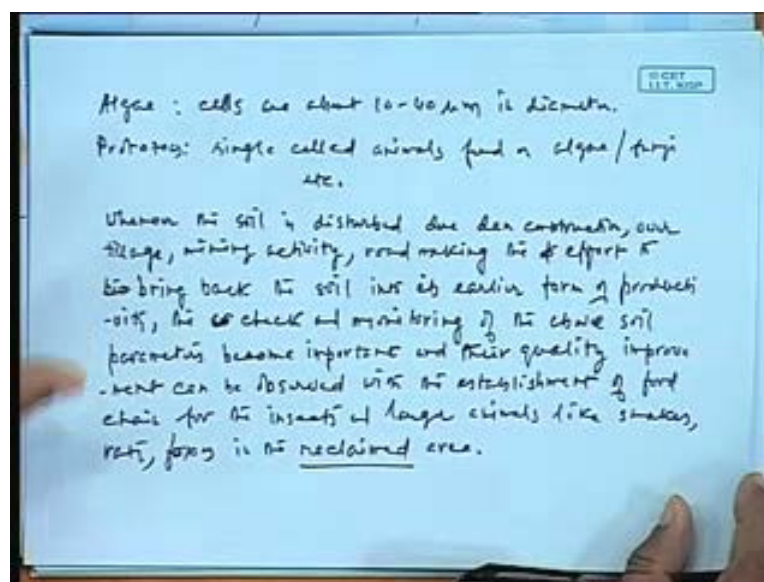 © CET
I.I.T. KGP
Algae : cells are about 10-40 µm in diameter.
Protozoa: single celled animals feed on algae / fungi
etc.
Whenever the soil is disturbed due dam construction, over
tillage, mining activity, road making the effort to
bring back the soil into its earlier form of producti
-vity, the check and monitoring of the above soil
parameters become important and their quality improve
-ment can be observed with the establishment of food
chain for the insects and large animals like snakes,
rats, foxes in the reclaimed area.